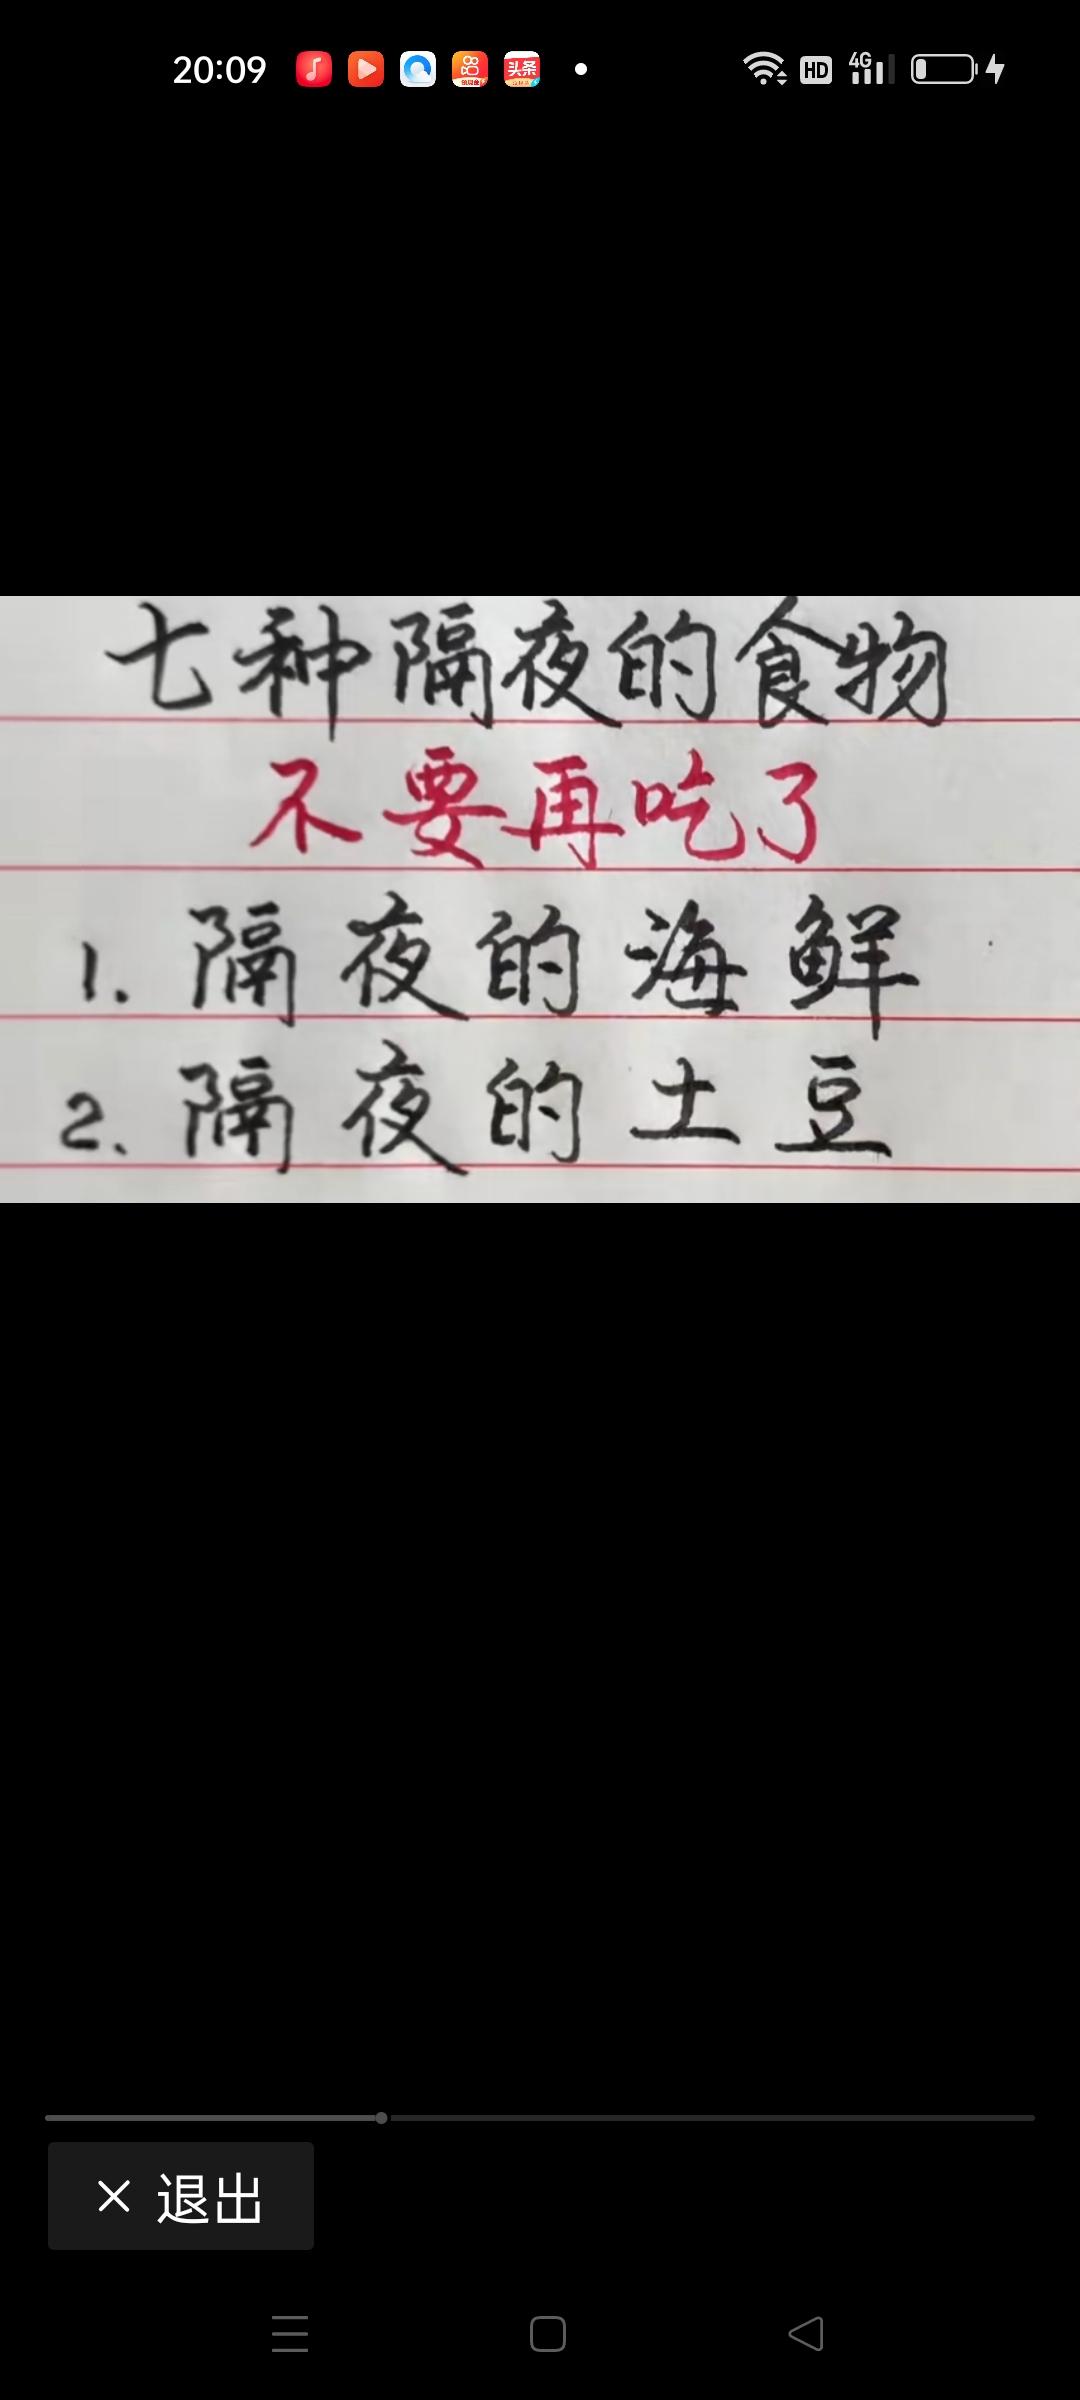 20:09 头条 HD 4G
七种隔夜的食物
不要再吃了
1. 隔夜的海鲜
2. 隔夜的土豆
退出